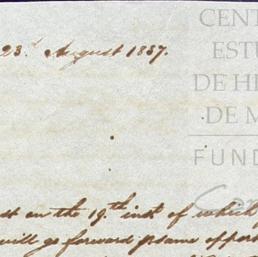 23d August 1837.
CENT
ESTU
DE HI
DE M
FUND
st on the 19th inst of which
will go forward p same oppor